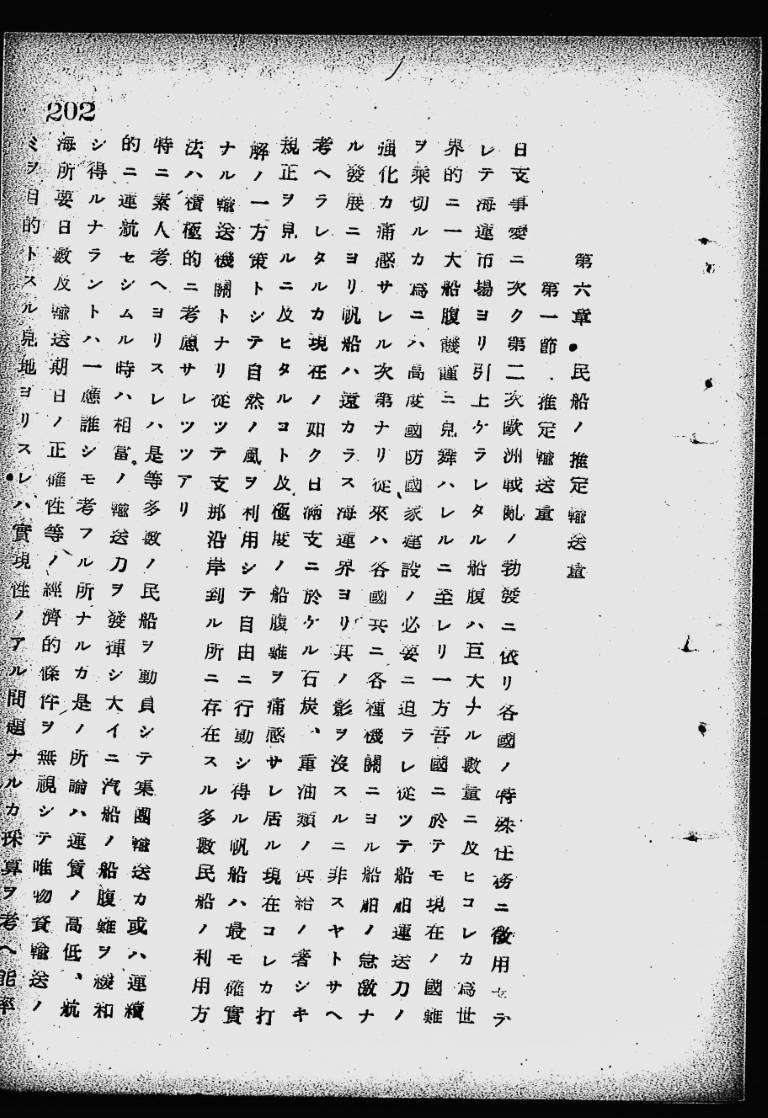 202
第六章・民船ノ推定輸送量
第一節．推定輸送量
日支事變ニ次ク第二次歐洲戰亂ノ勃發ニ依リ各國ノ特殊任務ニ徵用セラ
レテ海運市場ヨリ引上ケラレタル船腹ハ巨大ナル數量ニ及ヒコレカ為世
界的ニ一大船腹饑饉ニ見舞ハレルニ至レリ一方吾國ニ於テモ現在ノ國難
ヲ乘切ルカ爲ニハ高度國防國家建設ノ必要ニ迫ラレ從ツテ船舶運送力ノ
強化カ痛感サレル次第ナリ從來ハ各國共ニ各種機關ニヨル船舶ノ急激ナ
ル發展ニヨリ帆船ハ遠カラス海運界ヨリ其ノ影ヲ沒スルニ非スヤトサヘ
考ヘラレタルカ現在ノ如ク日滿支ニ於ケル石炭、重油類ノ供給ノ著シキ
規正ヲ見ルニ及ヒタルコト及極度ノ船腹難ヲ痛感サレ居ル現在コレカ打
解ノ一方策トシテ自然ノ風ヲ利用シテ自由ニ行動シ得ル帆船ハ最モ確實
ナル輸送機關トナリ從ツテ支那沿岸到ル所ニ存在スル多數民船ノ利用方
法ハ積極的ニ考慮サレツツアリ
特ニ素人考ヘヨリスレハ是等多數ノ民船ヲ動員シテ集團輸送カ或ハ連續
的ニ運航セシムル時ハ相當ノ輸送力ヲ發揮シ大イニ汽船ノ船腹難ヲ緩和
シ得ルナラントハ一應誰シモ考フル所ナルカ是ノ所論ハ運賃ノ高低、航
海所要日數及輸送期日ノ正確性等ノ經濟的條件ヲ無視シテ唯物資輸送ノ
ミヲ目的トスル見地ヨリスレハ實現性ノアル問題ナルカ採算ヲ考ヘ能率